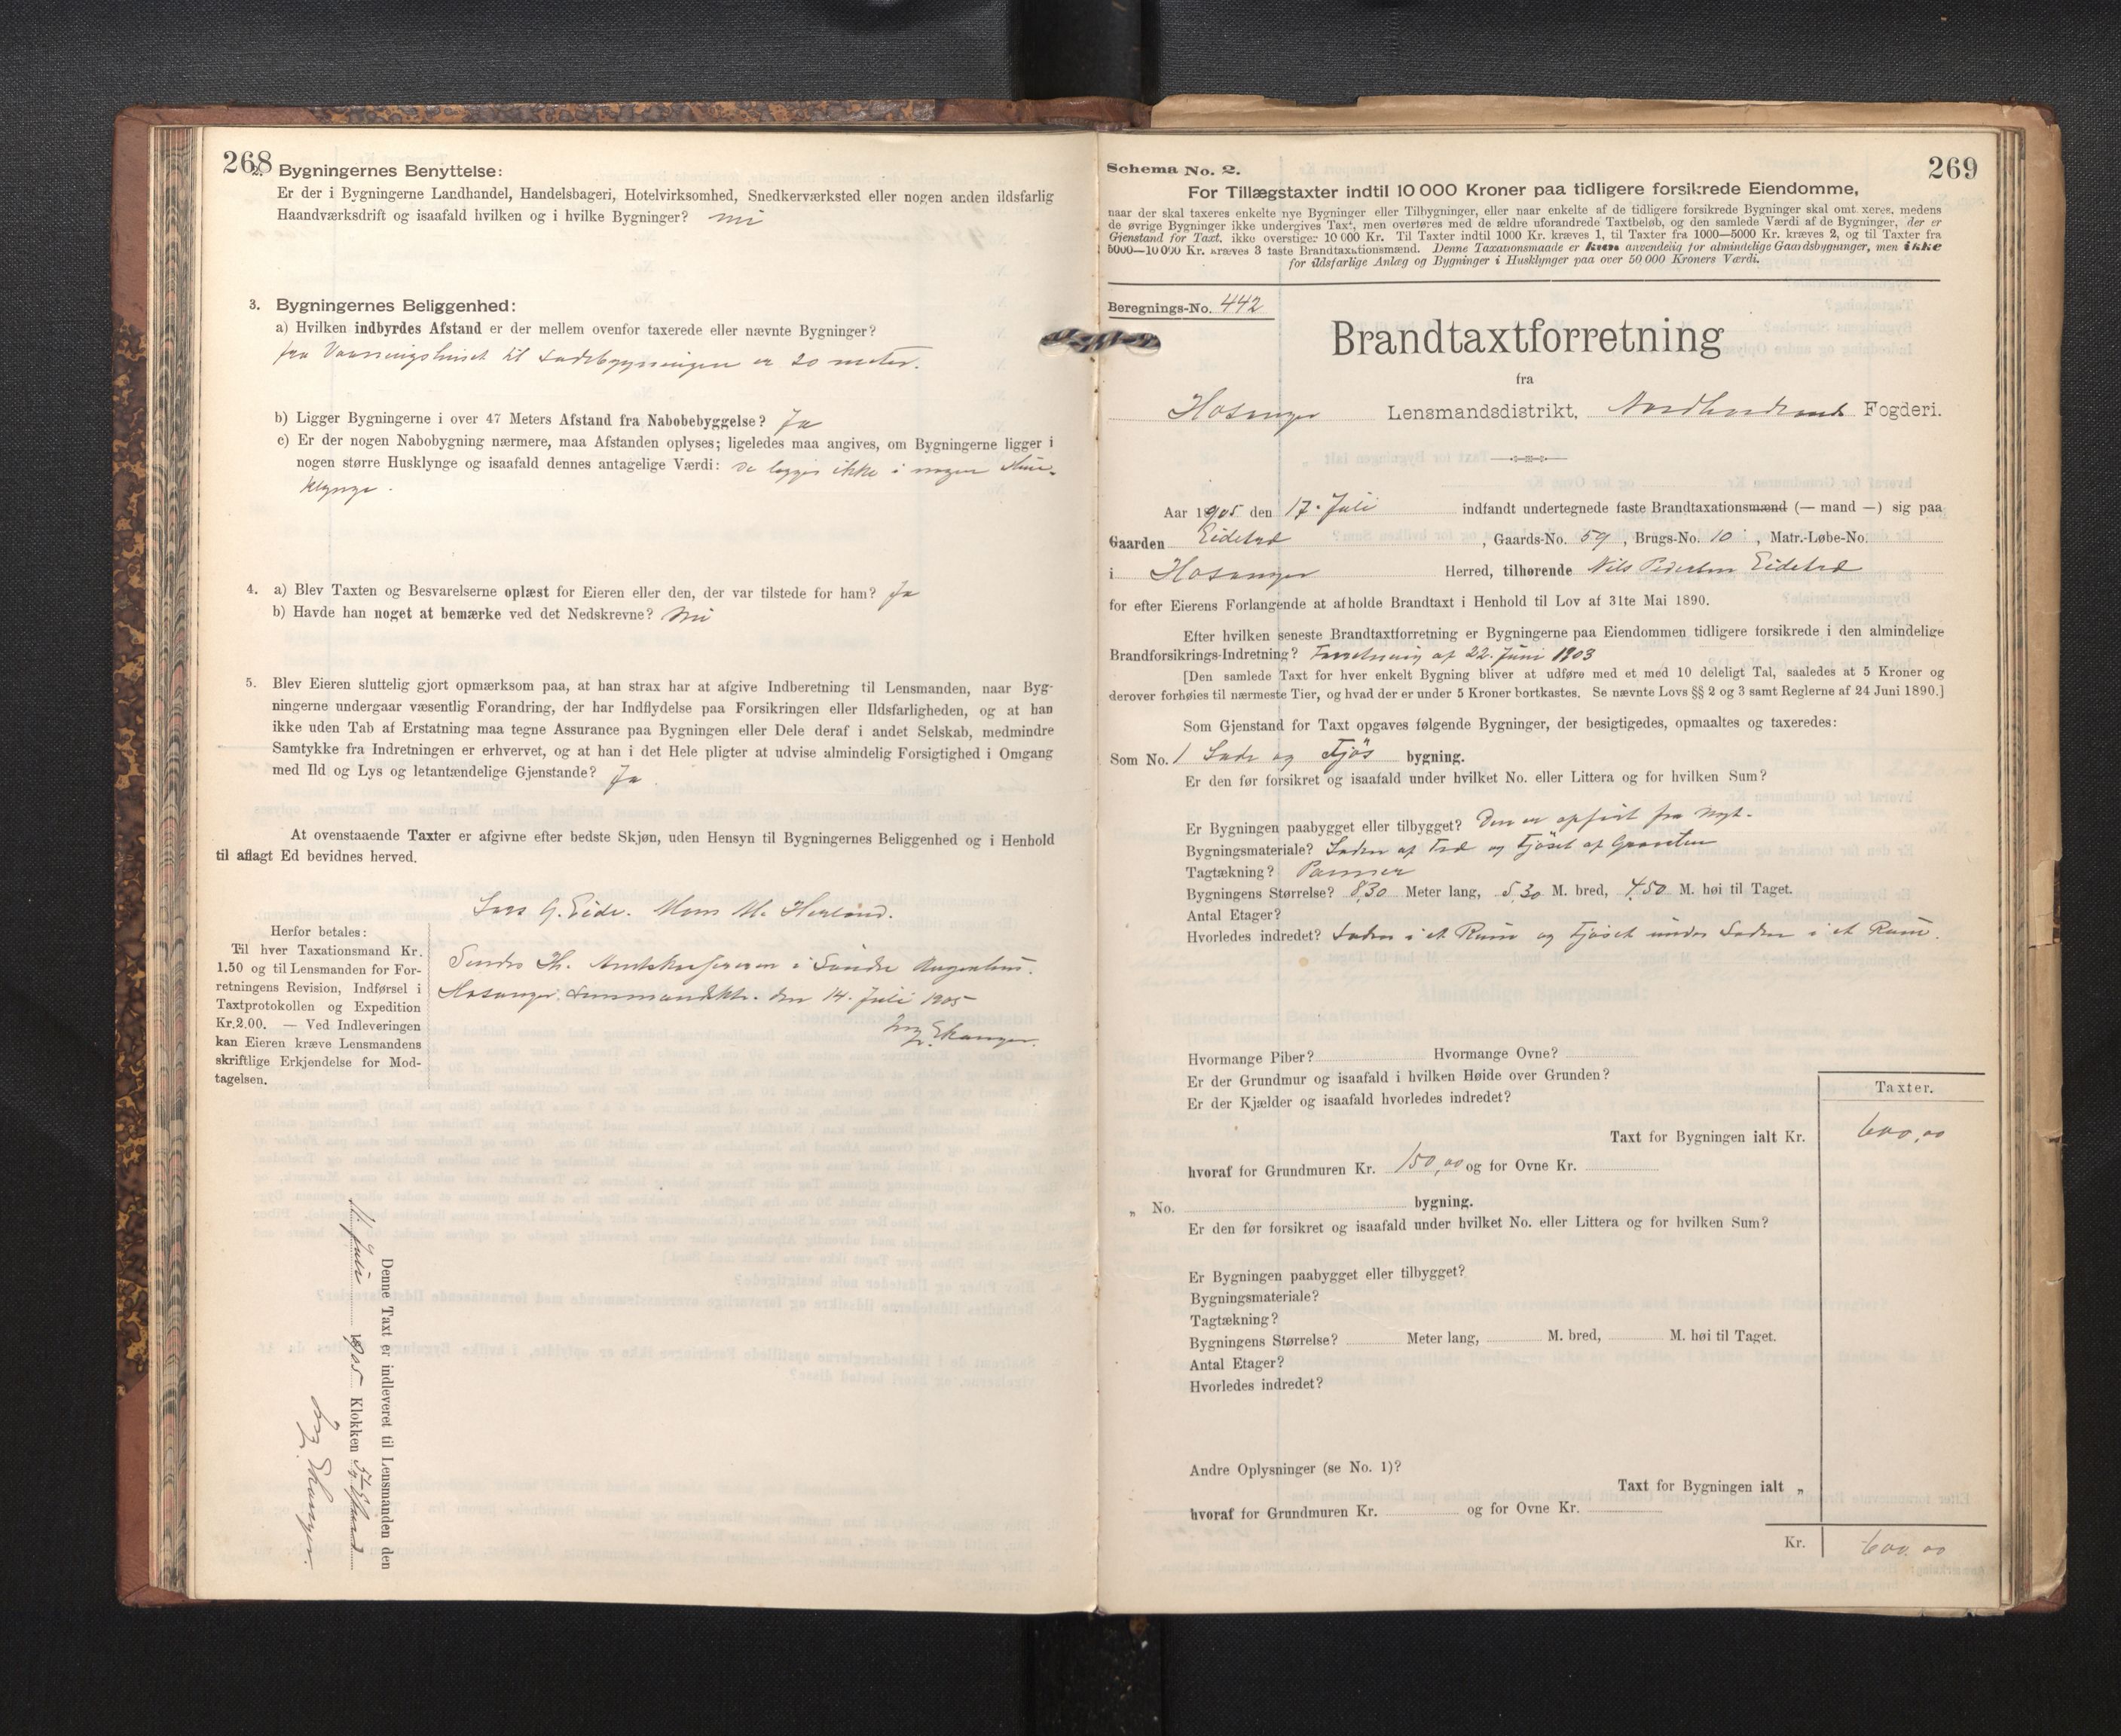 268
2. Bygningernes Benyttelse:
Er der i Bygningerne Landhandel, Handelsbageri, Hotelvirksomhed, Snedkerværksted eller nogen anden ildsfarlig
Haandværksdrift og isaafald hvilken og i hvilke Bygninger? nei
3. Bygningernes Beliggenhed:
a) Hvilken indbyrdes Afstand er der mellem ovenfor taxerede eller nævnte Bygninger?
fra Vaaningshuset til Ladebygningen er 20 meter.
b) Ligger Bygningerne i over 47 Meters Afstand fra Nabobebyggelse? Ja
c) Er der nogen Nabobygning nærmere, maa Afstanden oplyses; ligeledes maa angives, om Bygningerne ligger i
nogen større Husklynge og isaafald dennes antagelige Værdi: de ligger ikke i nogen Hus-
klynge.
4. a) Blev Taxten og Besvarelserne oplæst for Eieren eller den, der var tilstede for ham? Ja
b) Havde han noget at bemærke ved det Nedskrevne? nei
5. Blev Eieren sluttelig gjort opmærksom paa, at han strax har at afgive Indberetning til Lensmanden, naar Byg-
ningerne undergaar væsentlig Forandring, der har Indflydelse paa Forsikringen eller Ildsfarligheden, og at han
ikke uden Tab af Erstatning maa tegne Assurance paa Bygningen eller Dele deraf i andet Selskab, medmindre
Samtykke fra Indretningen er erhvervet, og at han i det Hele pligter at udvise almindelig Forsigtighed i Omgang
med Ild og Lys og letantændelige Gjenstande? Ja.
At ovenstaaende Taxter er afgivne efter bedste Skjøn, uden Hensyn til Bygningernes Beliggenhed og i Henhold
til aflagt Ed bevidnes herved.
Lars G. Eide. Mons M. Herland.
Herfor betales:
Til hver Taxationsmand Kr.
1.50 og til Lensmanden for For-
retningens Revision, Indførsel i
Taxtprotokollen og Expedition
Kr. 2.00. — Ved Indleveringen
kan Eieren kræve Lensmandens
skriftlige Erkjendelse for Mod-
tagelsen.
Sendes Hr.
Hosanger Lensmandsktr. den 14. Juli 1905
Denne Taxt er indleveret til Lensmanden den
Juli 1905 Klokken
269
Schema No. 2.
For Tillægstaxter indtil 10 000 Kroner paa tidligere forsikrede Eiendomme,
naar der skal taxeres enkelte nye Bygninger eller Tilbygninger, eller naar enkelte af de tidligere forsikrede Bygninger skal omtaxeres, medens
de øvrige Bygninger ikke undergives Taxt, men overføres med de ældre uforandrede Taxtbeløb, og den samlede Værdi af de Bygninger, der er
Gjenstand for Taxt, ikke overstiger 10 000 Kr. Til Taxter indtil 1000 Kr. kræves 1, til Taxter fra 1000—5000 Kr. kræves 2, og til Taxter fra
5000—10 000 Kr. kræves 3 faste Brandtaxationsmænd. Denne Taxationsmaade er kun anvendelig for almindelige Gaardsbygninger, men ikke
for ildsfarlige Anlæg og Bygninger i Husklynger paa over 50 000 Kroners Værdi.
Beregnings-No. 442
Brandtaxtforretning
fra
Hosanger Lensmandsdistrikt, Nordhordlands Fogderi.
Aar 1905 den 17. Juli indfandt undertegnede faste Brandtaxationsmænd (— mand —) sig paa
Gaarden Eidetræ, Gaards-No. 59, Brugs-No. 10, Matr.-Løbe-No.
i Hosanger Herred, tilhørende Nils Pedersen Eidetræ
for efter Eierens Forlangende at afholde Brandtaxt i Henhold til Lov af 31te Mai 1890.
Efter hvilken seneste Brandtaxtforretning er Bygningerne paa Eiendommen tidligere forsikrede i den almindelige
Brandforsikrings-Indretning? Forretning af 22. Juni 1903
[Den samlede Taxt for hver enkelt Bygning bliver at udføre med et med 10 deleligt Tal, saaledes at 5 Kroner og
derover forhøies til nærmeste Tier, og hvad der er under 5 Kroner bortkastes. Se nævnte Lovs §§ 2 og 3 samt Reglerne af 24 Juni 1890.]
Som Gjenstand for Taxt opgaves følgende Bygninger, der besigtigedes, opmaaltes og taxeredes:
Som No. 1 Lade og Fjøs bygning.
Er den før forsikret og isaafald under hvilket No. eller Littera og for hvilken Sum?
Er Bygningen paabygget eller tilbygget? Den er opført fra nyt.
Bygningsmateriale? Laden af Træ og Fjøset af Graasten
Tagtækning? Panner
Bygningens Størrelse? 8,30 Meter lang, 5,30 M. bred, 4,50 M. høi til Taget.
Antal Etager?
Hvorledes indredet? Laden i et Rum og Fjøset under Laden i et Rum.
Hvormange Piber? Hvormange Ovne?
Er der Grundmur og isaafald i hvilken Høide over Grunden?
Er der Kjælder og isaafald hvorledes indredet?
Taxter.
Taxt for Bygningen ialt Kr. 600,00
hvoraf for Grundmuren Kr. 150,00 og for Ovne Kr.
„ No. bygning.
Er den før forsikret og isaafald under hvilket No. eller Littera og for hvilken Sum?
Er Bygningen paabygget eller tilbygget?
Bygningsmateriale?
Tagtækning?
Bygningens Størrelse? Meter lang, M. bred, M. høi til Taget.
Antal Etager?
Hvorledes indredet?
Andre Oplysninger (se No. 1)?
Taxt for Bygningen ialt „
hvoraf for Grundmuren Kr. og for Ovne Kr.
Kr. 600,00